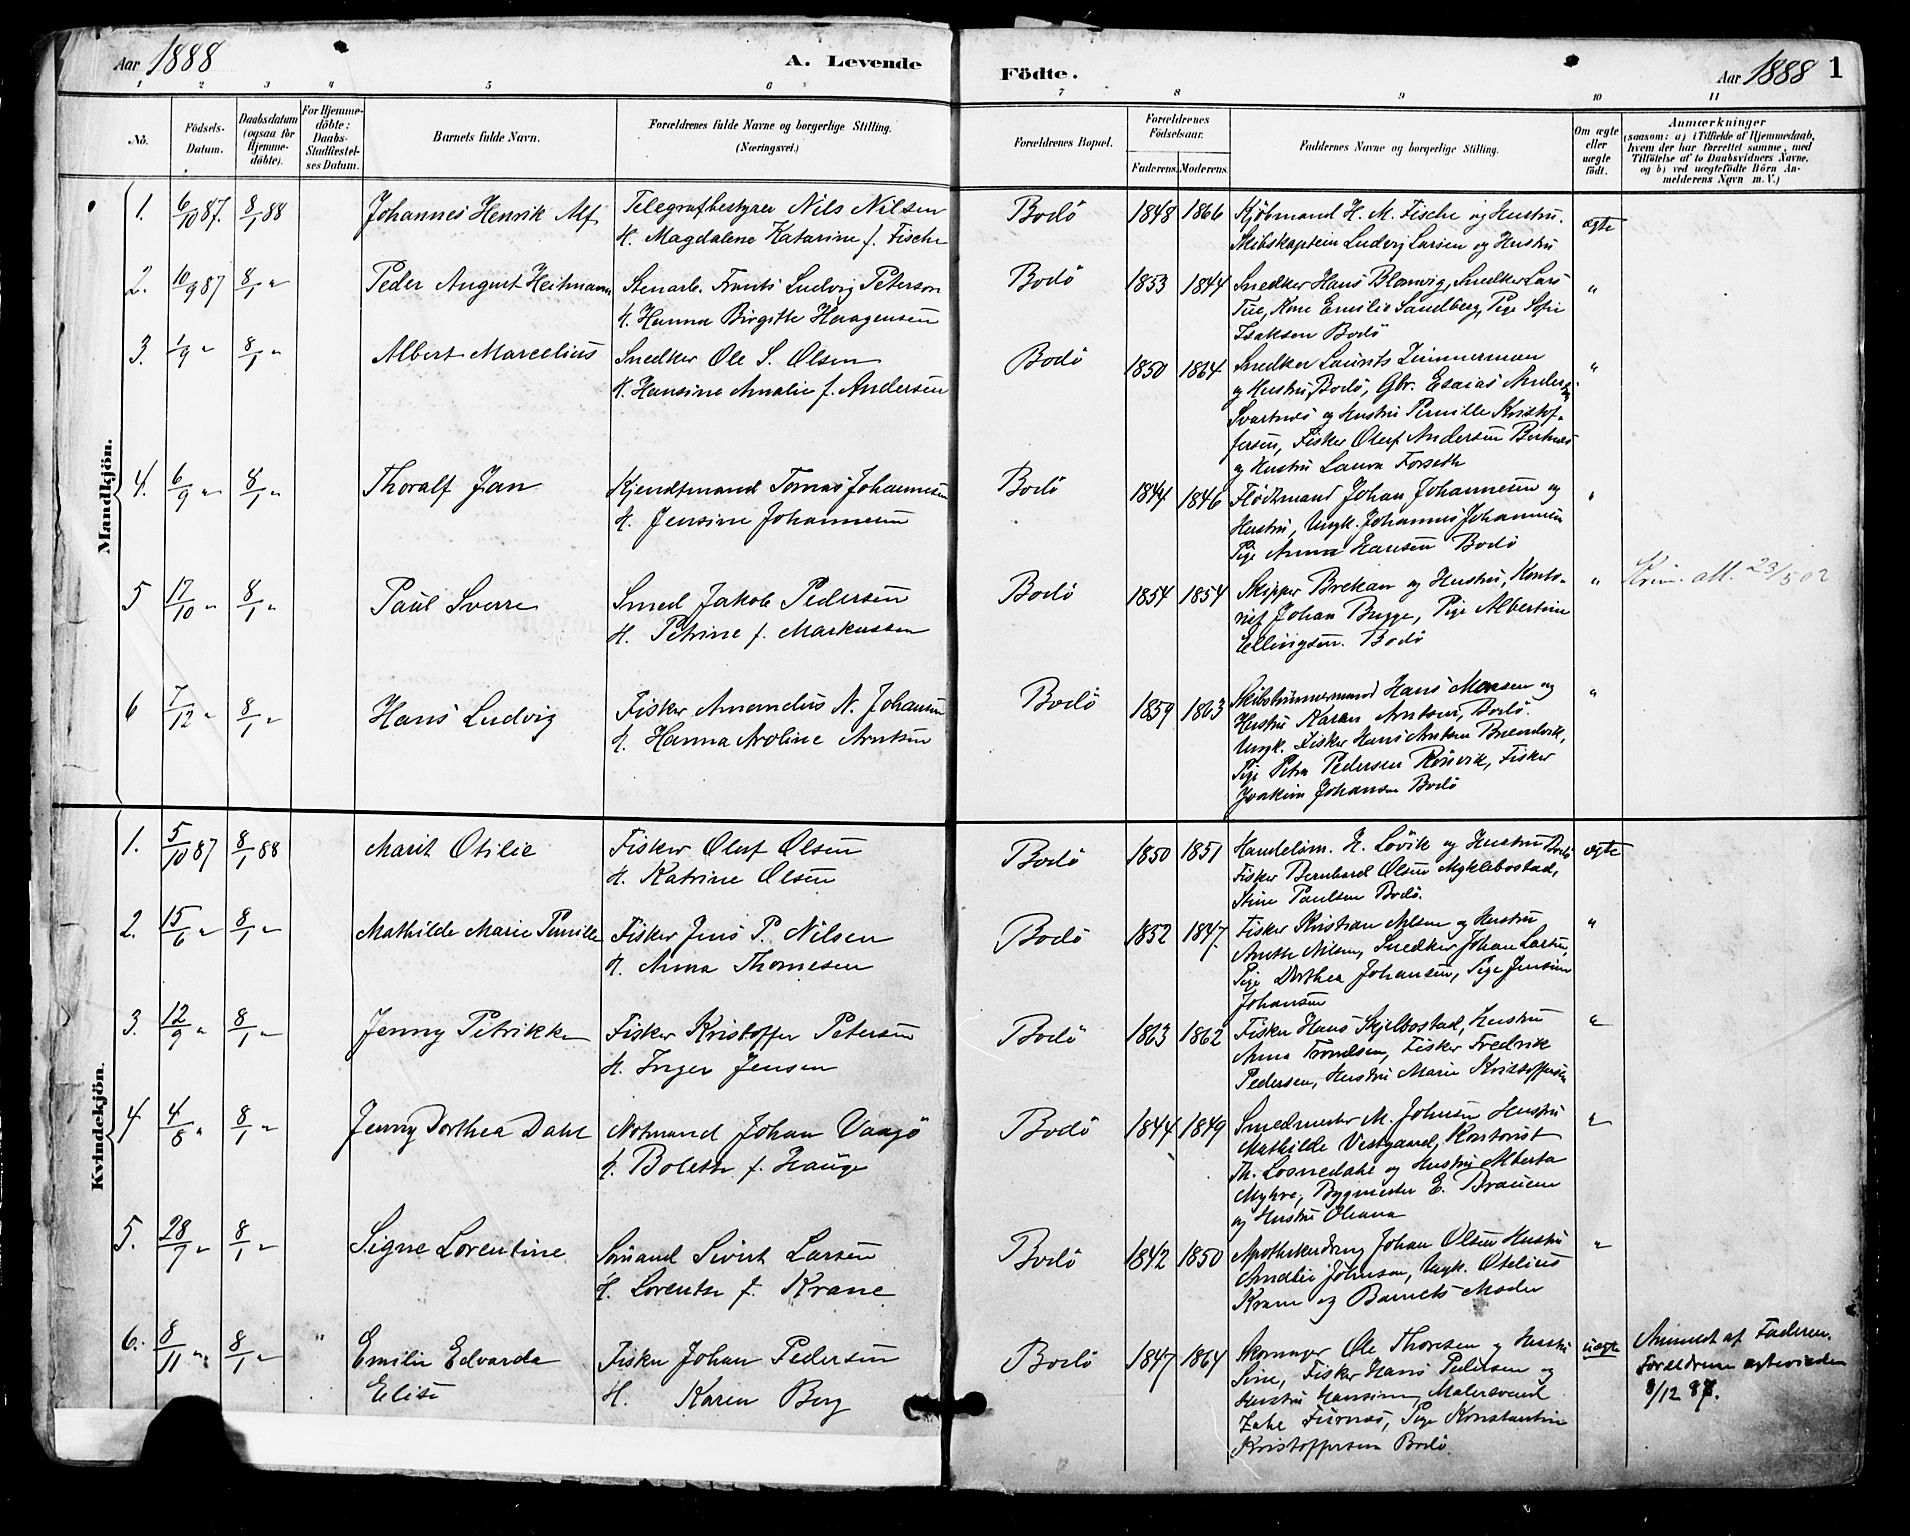 Aar 1888 A. Levende Födte. Aar 1888 1
1 2 3 4 5 6 7 8 9 10 11
No.
Födsels-Datum.
Daabsdatum (ogsaa för Hjemme-döbte).
For Hjemme-döbte: Daabs-Stadfæstel-ses Datum.
Barnets fulde Navn.
Forældrenes fulde Navne og borgerlige Stilling.
(Næringsvei.)
Forældrenes Bopæl.
Forældrenes Födselsaar.
Faderens. Moderens.
Faddernes Navne og borgerlige Stilling.
Om ægte eller uægte födt.
Anmærkninger
(saasom: a) i Tilfælde af Hjemmedaab,
hvem der har forrettet samme, med
Tilföielse af to Daabsvidners Navne.
og b) ved uægtefödte Börn An-
melderens Navn m. V.)
Mandkjön.
1. 6/10 87. 8/1 88 Johannes Henrik Alf Telegrafbestyrer Nils Nilsen Bodö 1848 1866 Kjöbmand H. M. Fische og Hustru. ægte
H. Magdalene Katarine f. Fische Skibskaptein Ludvig Larsen og Hustru
2. 10/9 87 8/1 " Peder August Heitmann Stenarb. Ludvig Peterson Bodö 1853 1844 Snedker Hans Blomvig, Snedker Lars "
H. Hanna Birgitte Haagensen Tue, Kone Emilie Sandberg, Pige Sofie
Isaksen Bodö
3. 1/9 " 8/1 " Albert Marcelius Snedker Ole S. Olsen Bodö 1850 1864 Snedker Laurits Zimmerman "
H. Hansine Amalie f. Andersen og Hustru, Bodö, Gbr. Esaias Andersen
Svartnes og Hustru Pernille Kristof-
fersen, Fisker Oluf Andersen Bertnes
og Hustru Laura Forseth
4. 6/9 " 8/1 " Thoralf Jan Kjendtmand Tomas Johannesen Bodö 1844 1846 Flödtmand Johan Johannesen og "
H. Jensine Johannesen Hustru, Ungk. Johannes Johannesen
Pige Anna Hansen Bodö
5 17/10 " 8/1 " Paul Sverre Smed Jakob Pedersen Bodö 1854 1854 Skipper Brekan og Hustru, Konto- " Krim. att. 23/5 02
H. Petrine f. Markussen rist Johan Brygge, Pige Albertine
Ellingsen. Bodö
6 7/12 " 8/1 " Hans Ludvig Fisker Amandus N. Johansen Bodö 1859 1863 Skibstømmermand Hans Monsen og "
H. Hanna Aroline Arntsen Hustru Karen Arntsen, Bodö.
Ungk. Fisker Hans Arntsen
Pige Petra Pedersen Rönvik, Fisker
Joakim Johansen Bodö
Kvindekjön.
1. 5/10 87 8/1 88 Marit Otilie Fisker Oluf Olsen Bodö 1850 1851 Handelsm. H. Lövik og Hustru Bodö ægte
H. Katrine Olsen Fisker Bernhard Olsen Myklebostad,
Stine Paulsen Bodö.
2. 15/6 " 8/1 " Mathilde Marie Pernille Fisker Jens P. Nilsen Bodö 1852 1847. Fisker Kristian Nilsen og Hustru "
H. Anna Thomesen Anette Nilsen, Snedker Johan Larsen,
Pige Dorthea Johansen, Pige Jensine
Johansen
3. 12/9 " 8/1 " Jenny Petrikke Fisker Kristoffer Petersen Bodö 1863 1862 Fisker Hans Skjelbostad, Hustru "
H. Inger Jensen Anna Trondsen, Fisker Fredrik
Pedersen, Hustru Marie Kristoffersen
4. 4/8 " 8/1 " Jenny Dorthea Dahl Notmand Johan Vaagö Bodö 1844 1849 Smedmester M. Johnsen Hustru "
H. Bolette f. Hauge Mathilde Vestgaard, Kontorist
Th. Losnedahl og Hustru Alberta
Myhre, Bygmester E. Brauen
og Hustru Oleana
5. 28/7 " 8/1 " Signe Lorentine Sömand Sivert Larsen Bodö 1842 1850 Apothekerdreng Johan Olsen Hustru "
H. Lorentse f. Krane Amalie Johnsen, Ungk. Otelius
Krane og Barnets Moder
6. 8/11 " 8/1 " " Emilie Edvarda Fisker Johan Pedersen Bodö 1847 1864 Skomager Ole Thoresen og Hustru uægte Anmeldt af Faderen.
Elise H. Karen Berg Sine, Fisker Hans Pedersen og Forældrene ægteviede
Hustru Hansine, Malersvend 8/12 87.
Furnes, Pige Konstantine
Kristoffersen Bodö